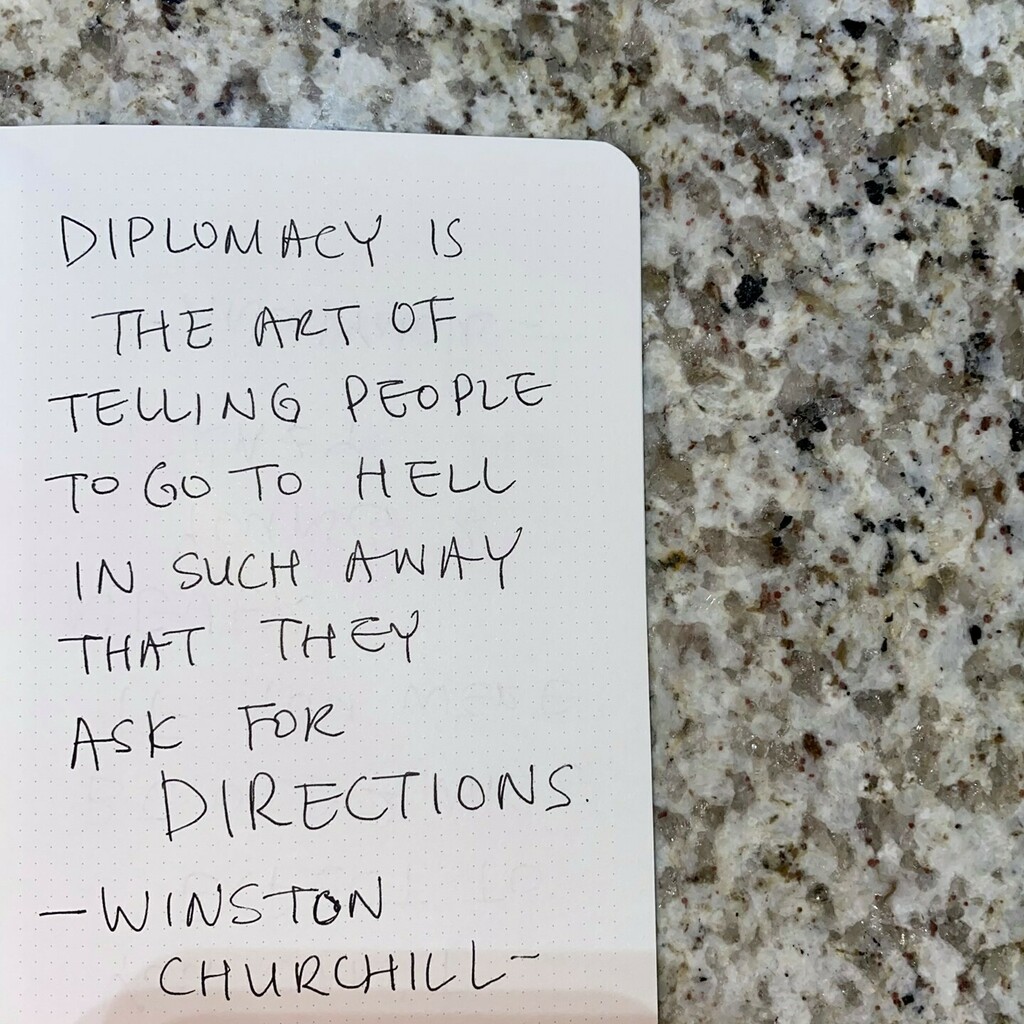 DIPLOMACY IS
THE ART OF
TELLING PEOPLE
TO GO TO HELL
IN SUCH AWAY
THAT THEY
ASK FOR
DIRECTIONS.
—WINSTON
CHURCHILL-